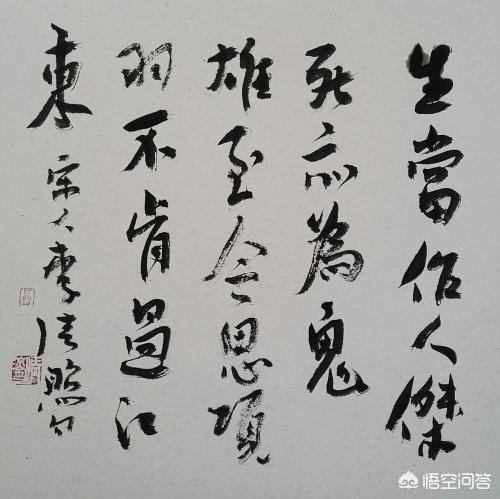 生當作人傑
死亦為鬼
雄至今思項
羽不肯過江
東 宋人李清照句
悟空问答